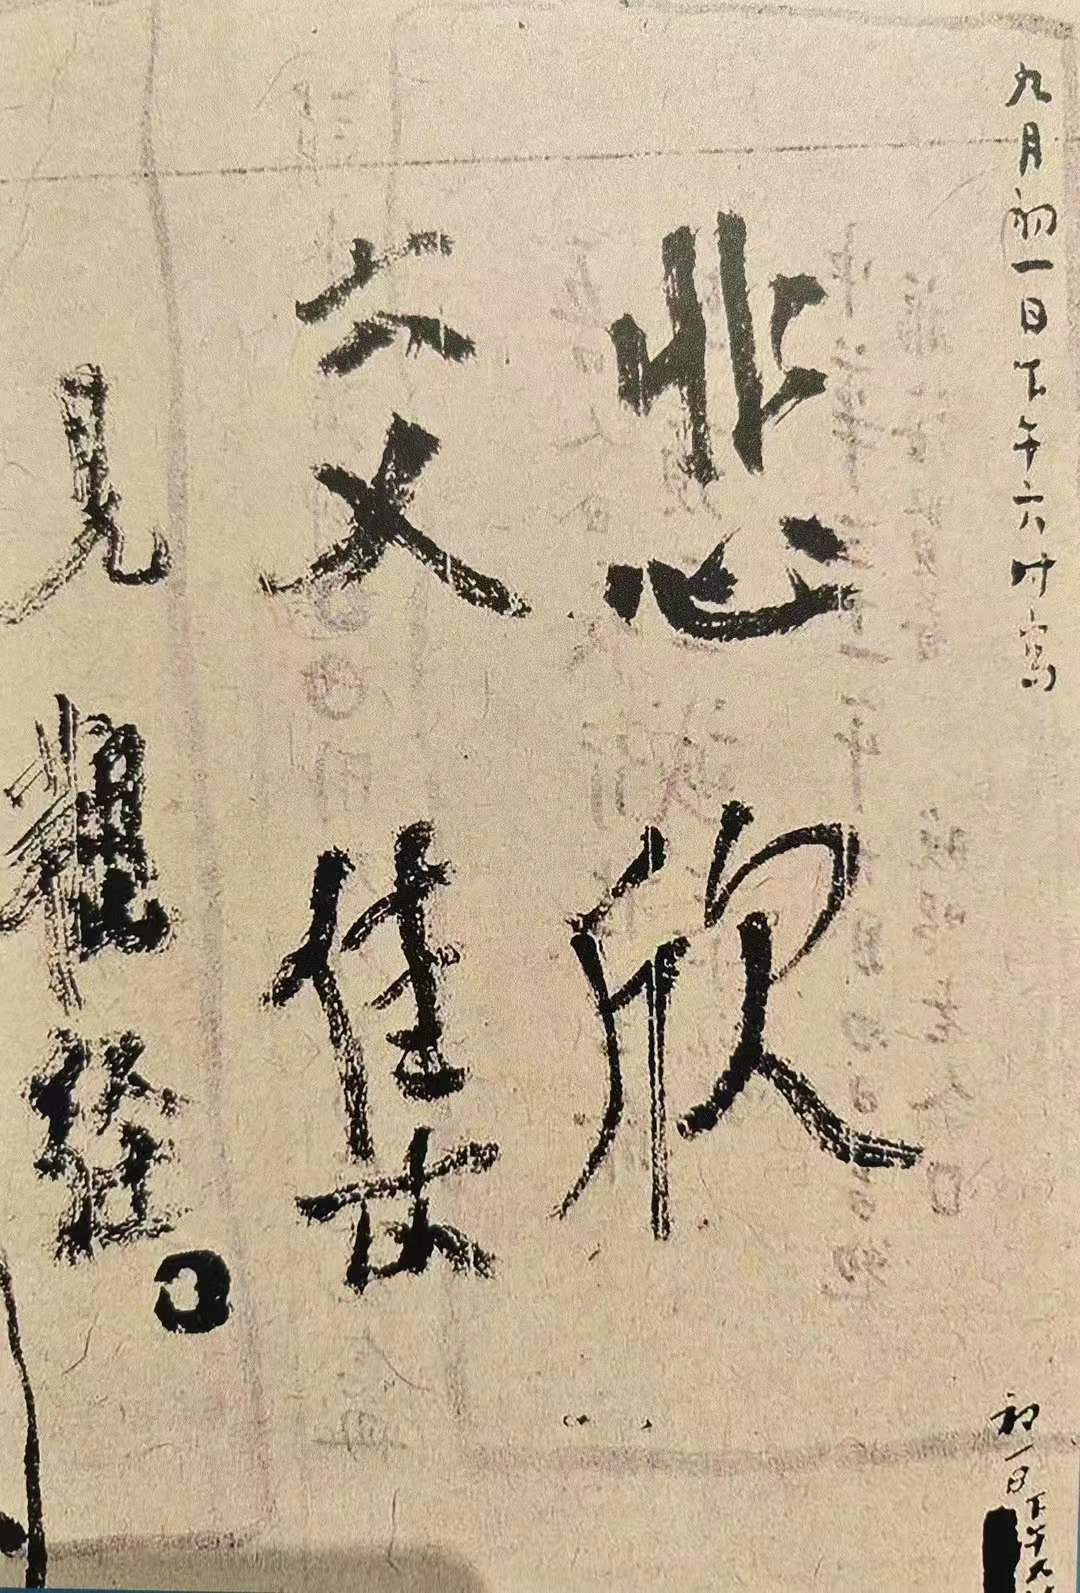 九月初一日下午六时寫
悲欣
交集
見觀經
初一日下午